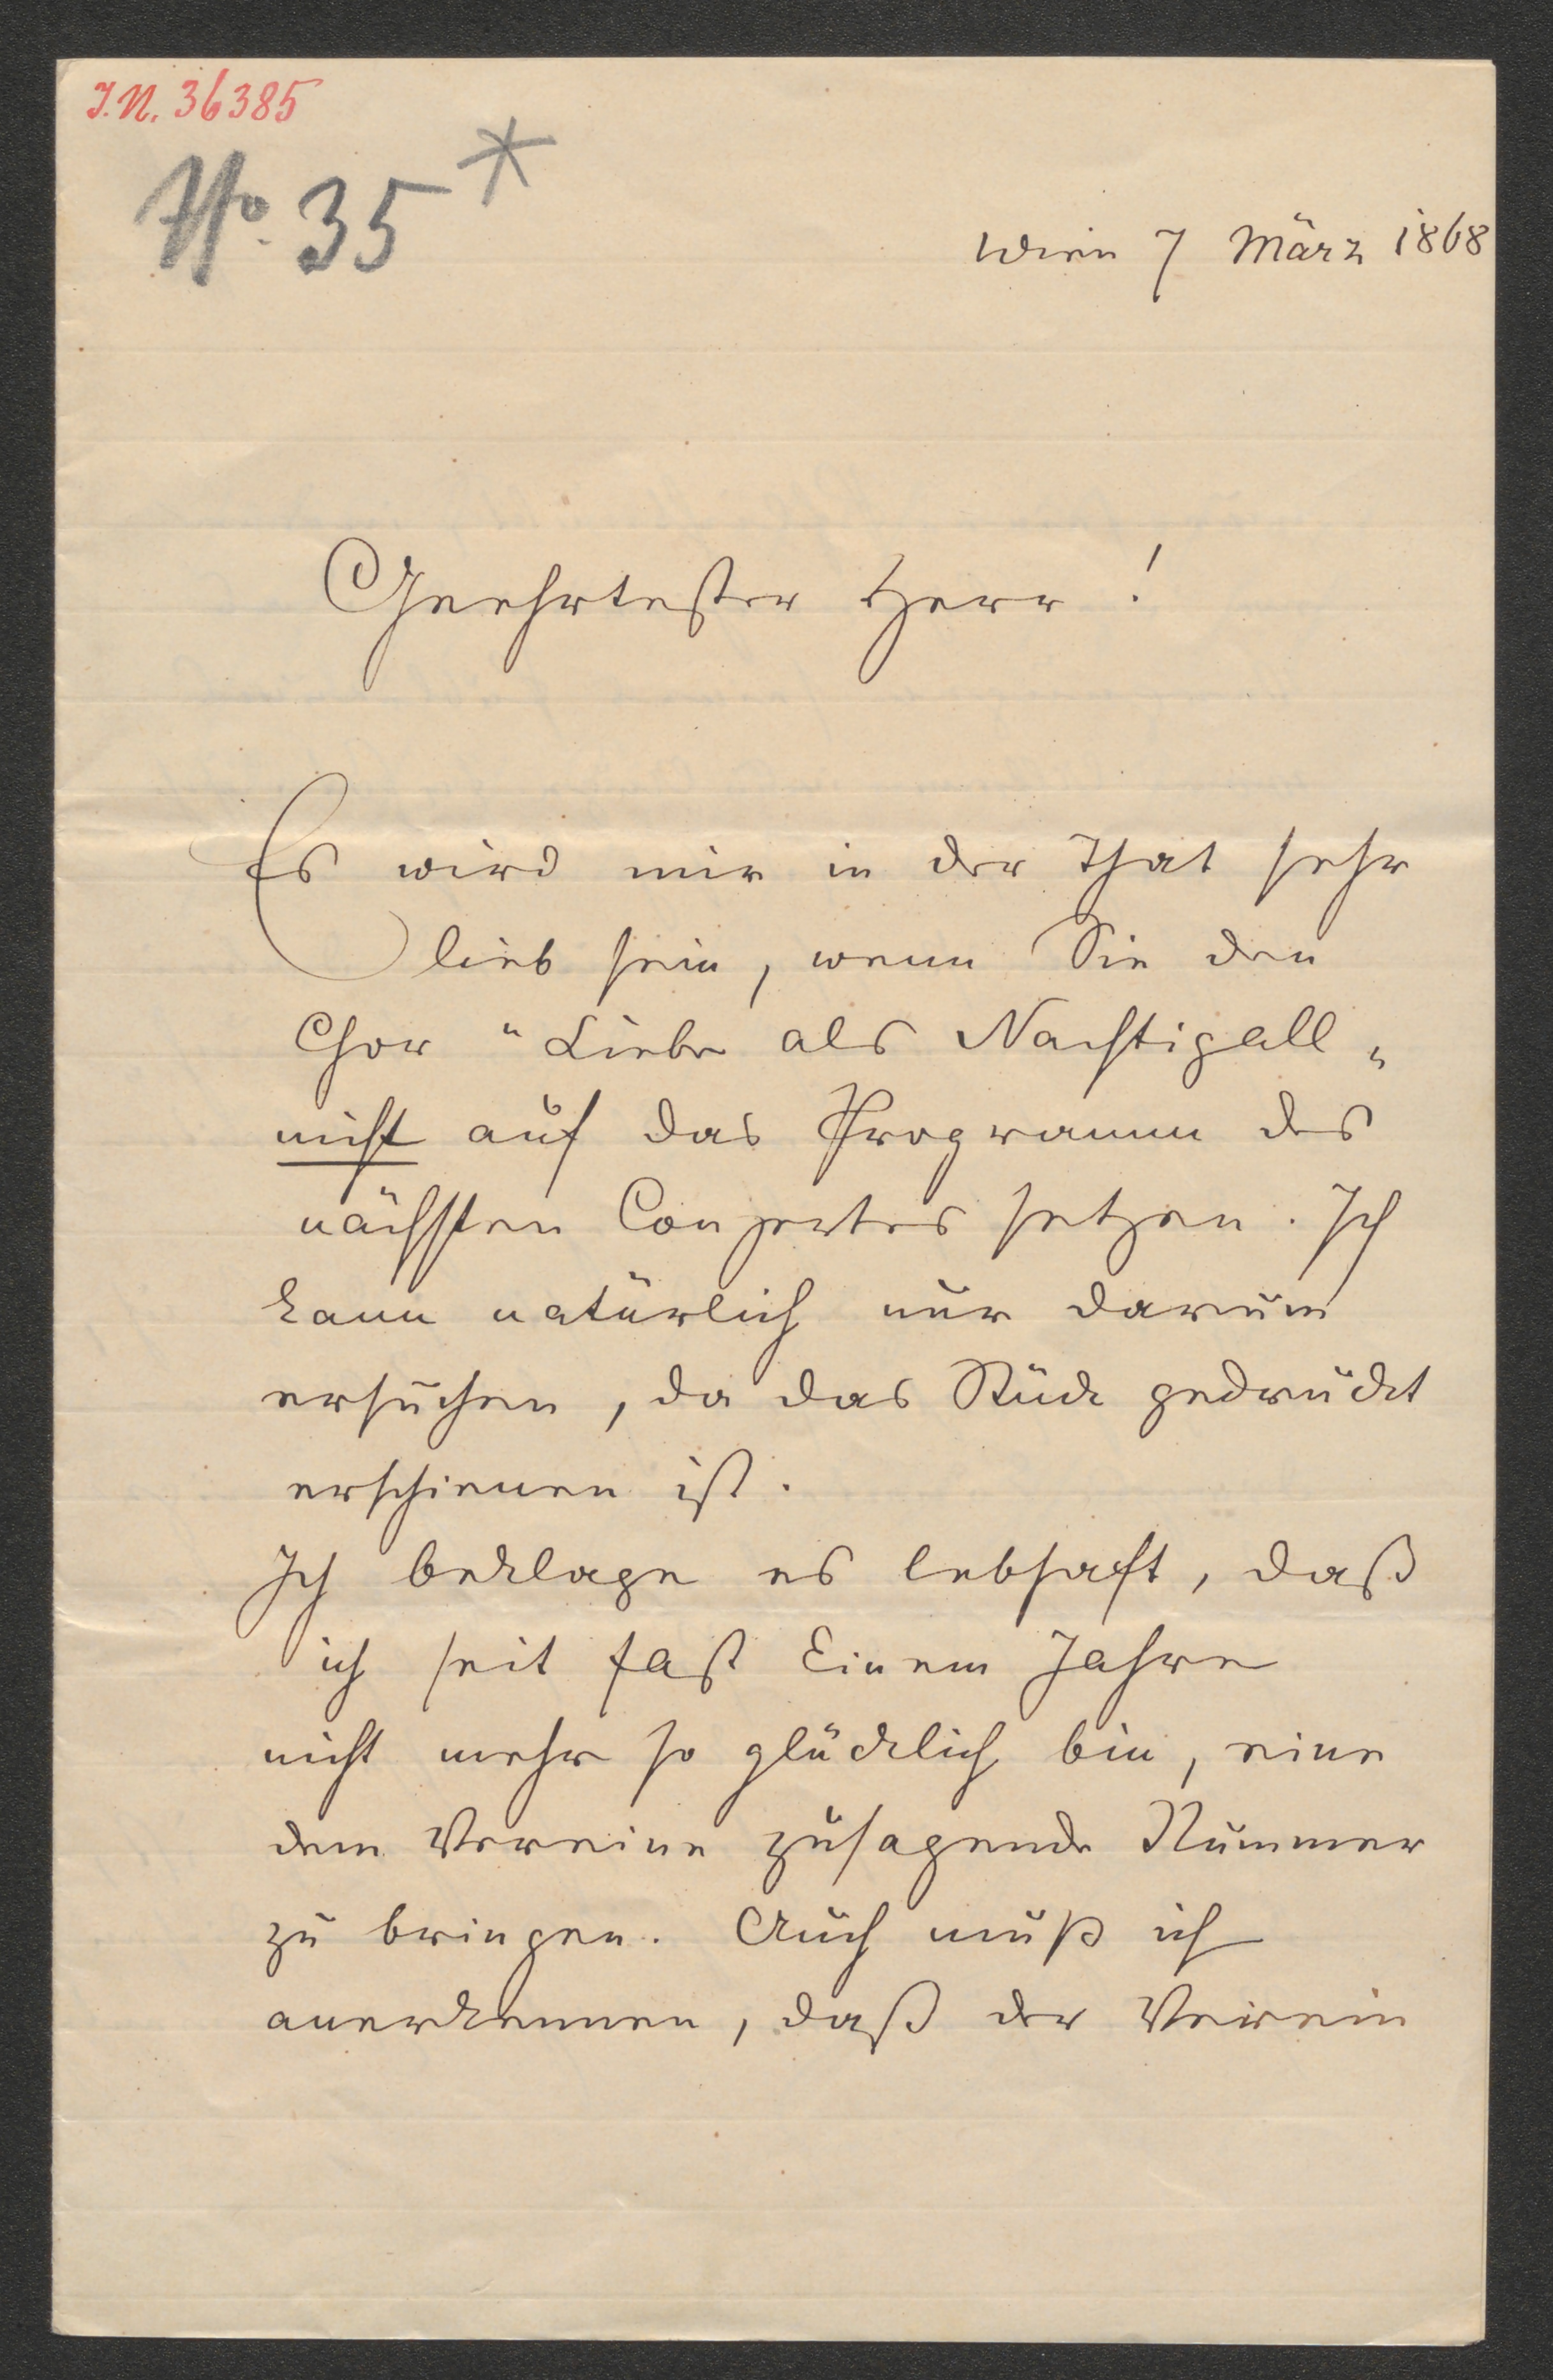 I.N. 36385
No. 35 *
Wien 7 März 1868
Geehrtester Herr !
Es wird mir in der That sehr
lieb sein, wenn Sie den
Chor "Liebe als Nachtigall„
nicht auf das Programm des
nächsten Conzertes setzen. Ich
kann natürlich nur darum
ersuchen, da das Stück gedruckt
erschienen ist.
Ich beklage es lebhaft, daß
ich seit fast Einem Jahre
nicht mehr so glücklich bin, eine
dem Vereine zusagende Nummer
zu bringen. Auch muß ich
anerkennen, daß der Verein